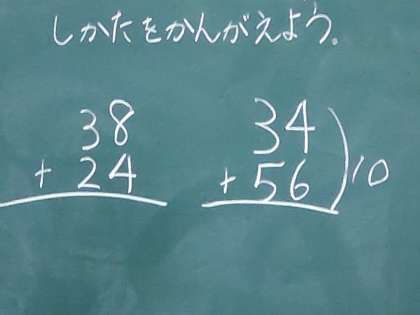 しかたをかんがえよう。
38 34
+ 24 + 56 10